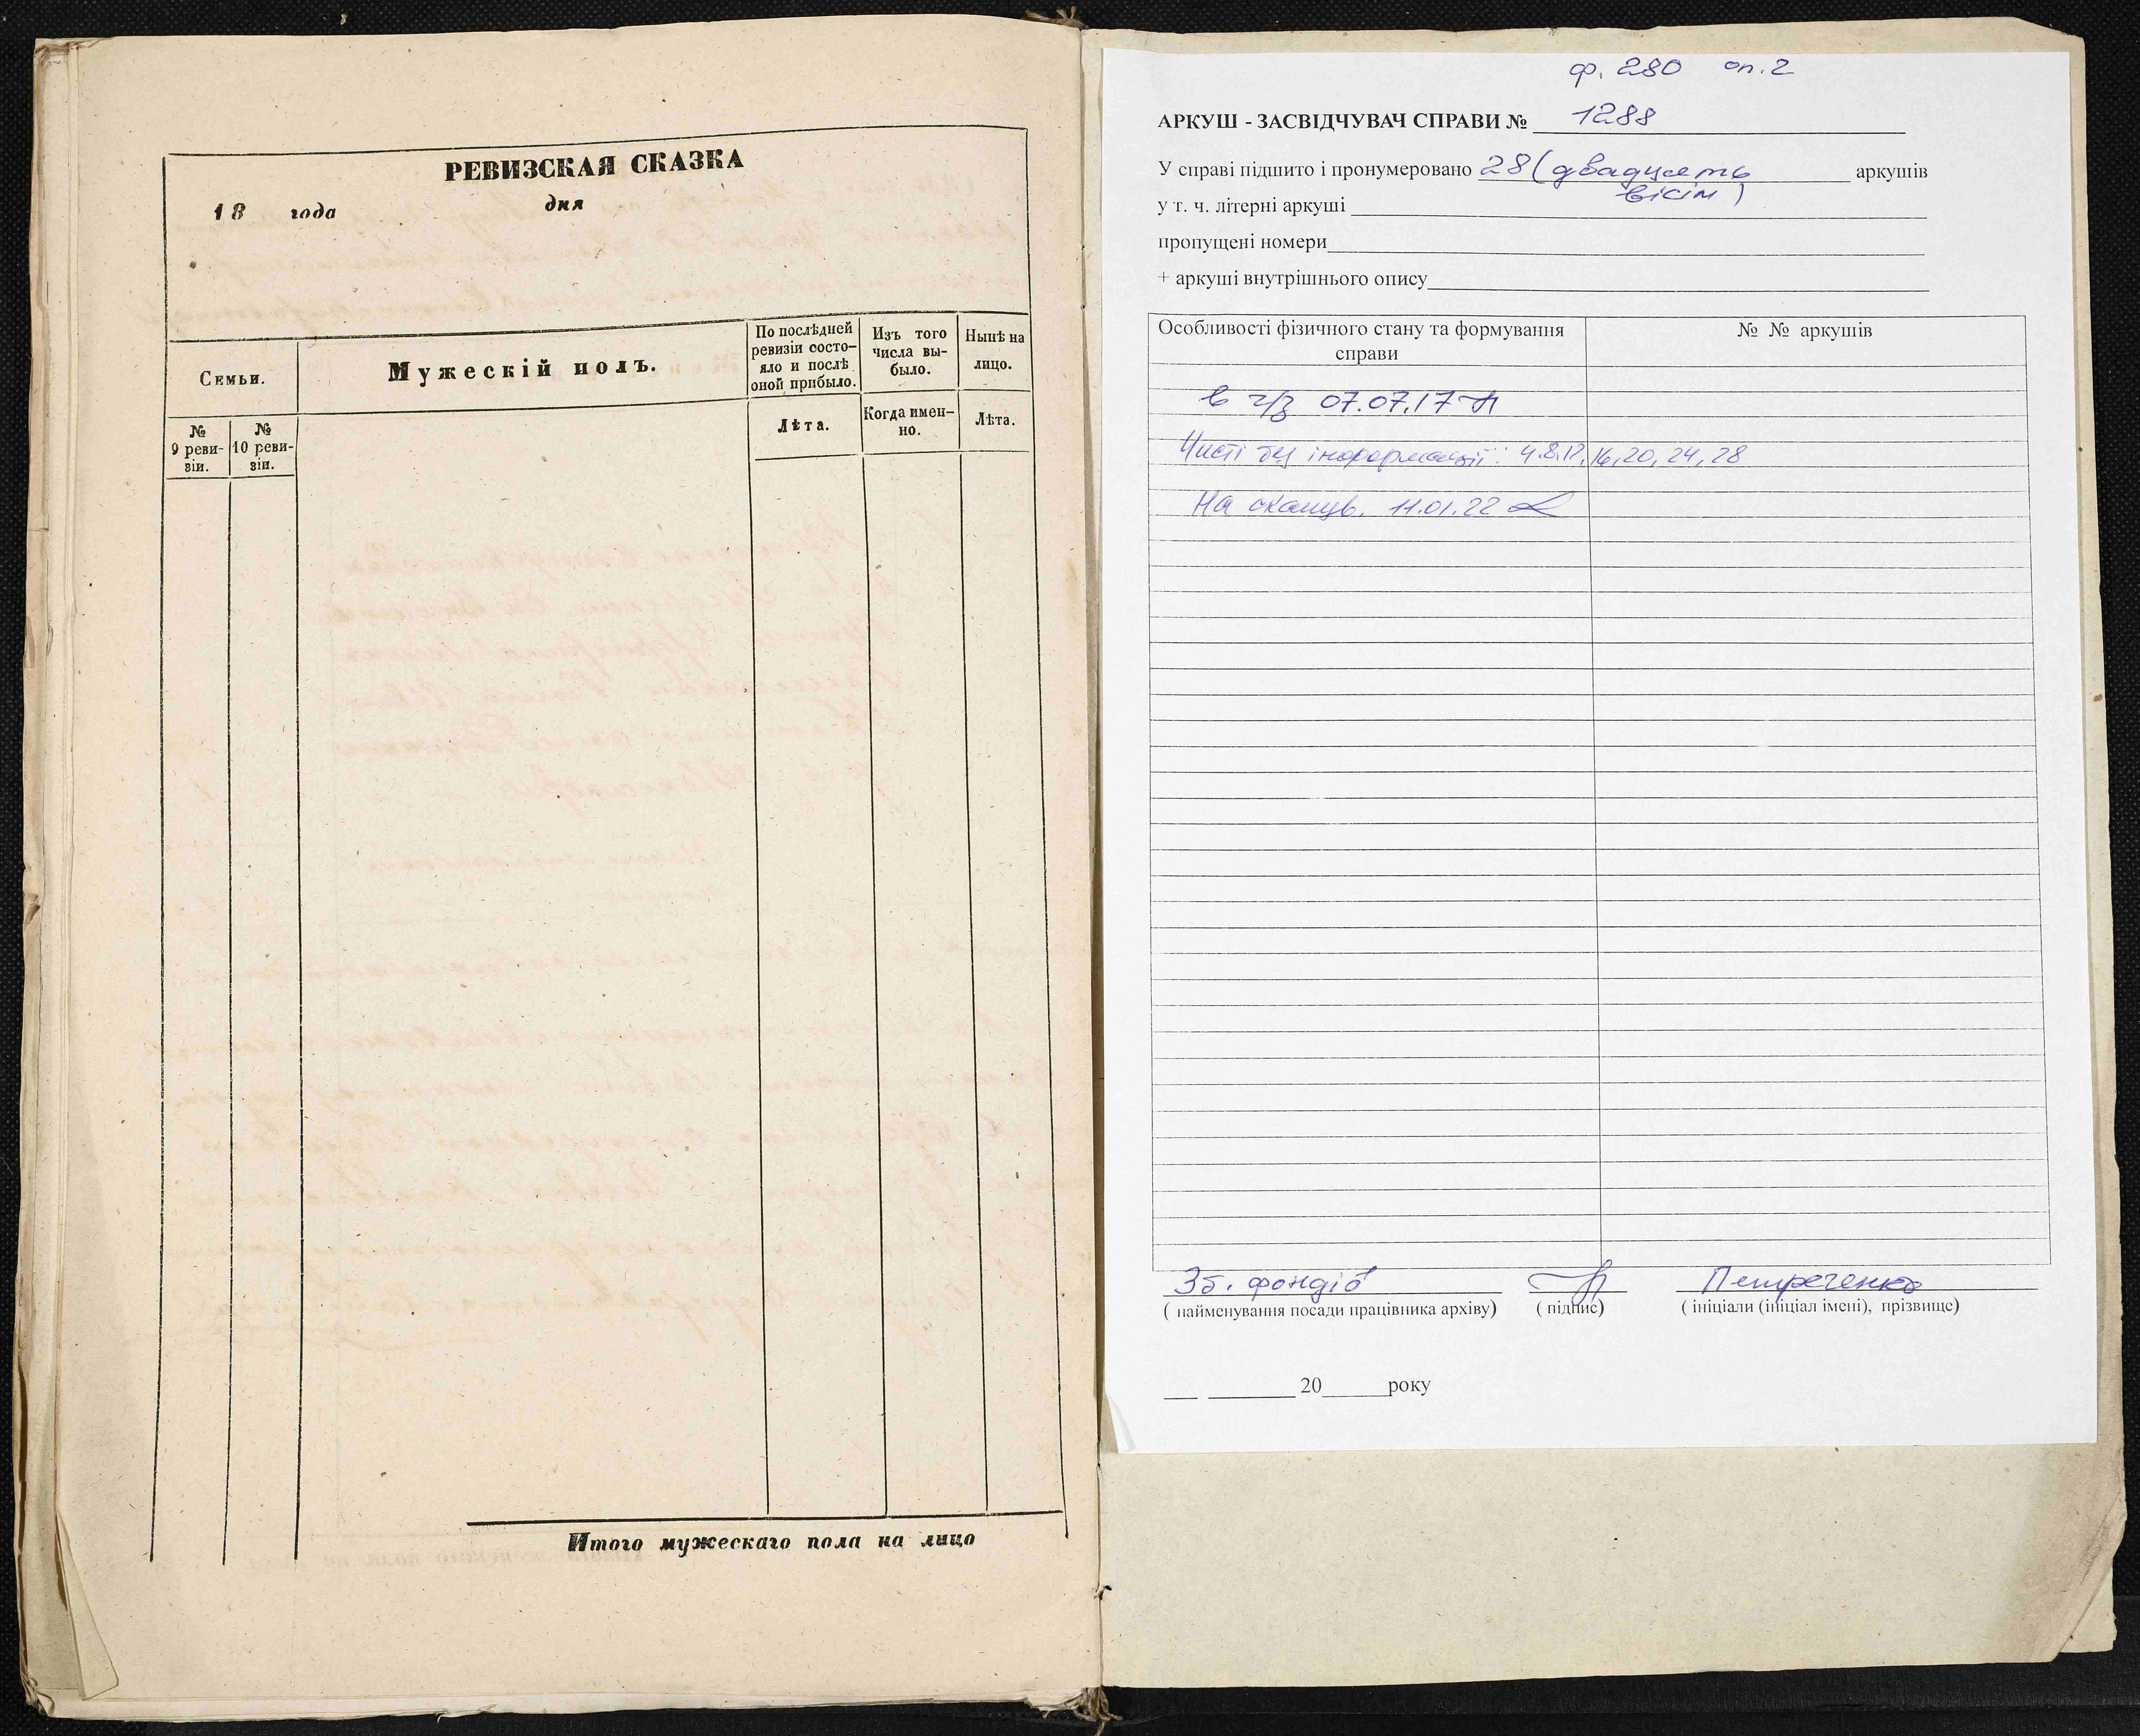 РЕВИЗСКАЯ СКАЗКА
18 года дня
Семьи.
Мужескій полъ.
По послѣдней
ревизіи состо-
яло и послѣ
оной прибыло.
Изъ того
числа вы-
было.
Нынѣ на
лицо.
№
9 реви-
зіи.
№
10 реви-
зіи.
Лѣта.
Когда имен-
но.
Лѣта.
Итого мужескаго пола на лицо
ф. 280 оп. 2
АРКУШ - ЗАСВІДЧУВАЧ СПРАВИ № 1288
У справі підшито і пронумеровано 28 (двадцять аркушів
вісім)
у т. ч. літерні аркуші
пропущені номери
+ аркуші внутрішнього опису
Особливості фізичного стану та формування
справи
№ № аркушів
в ч/з 07.07.17
Чисті без інформації: 4.8.12, 16, 20, 24, 28
На сканув. 11.01.22
Зб. фондів Петреченко
( найменування посади працівника архіву) ( підпис) ( ініціали (ініціал імені), прізвище)
20 року